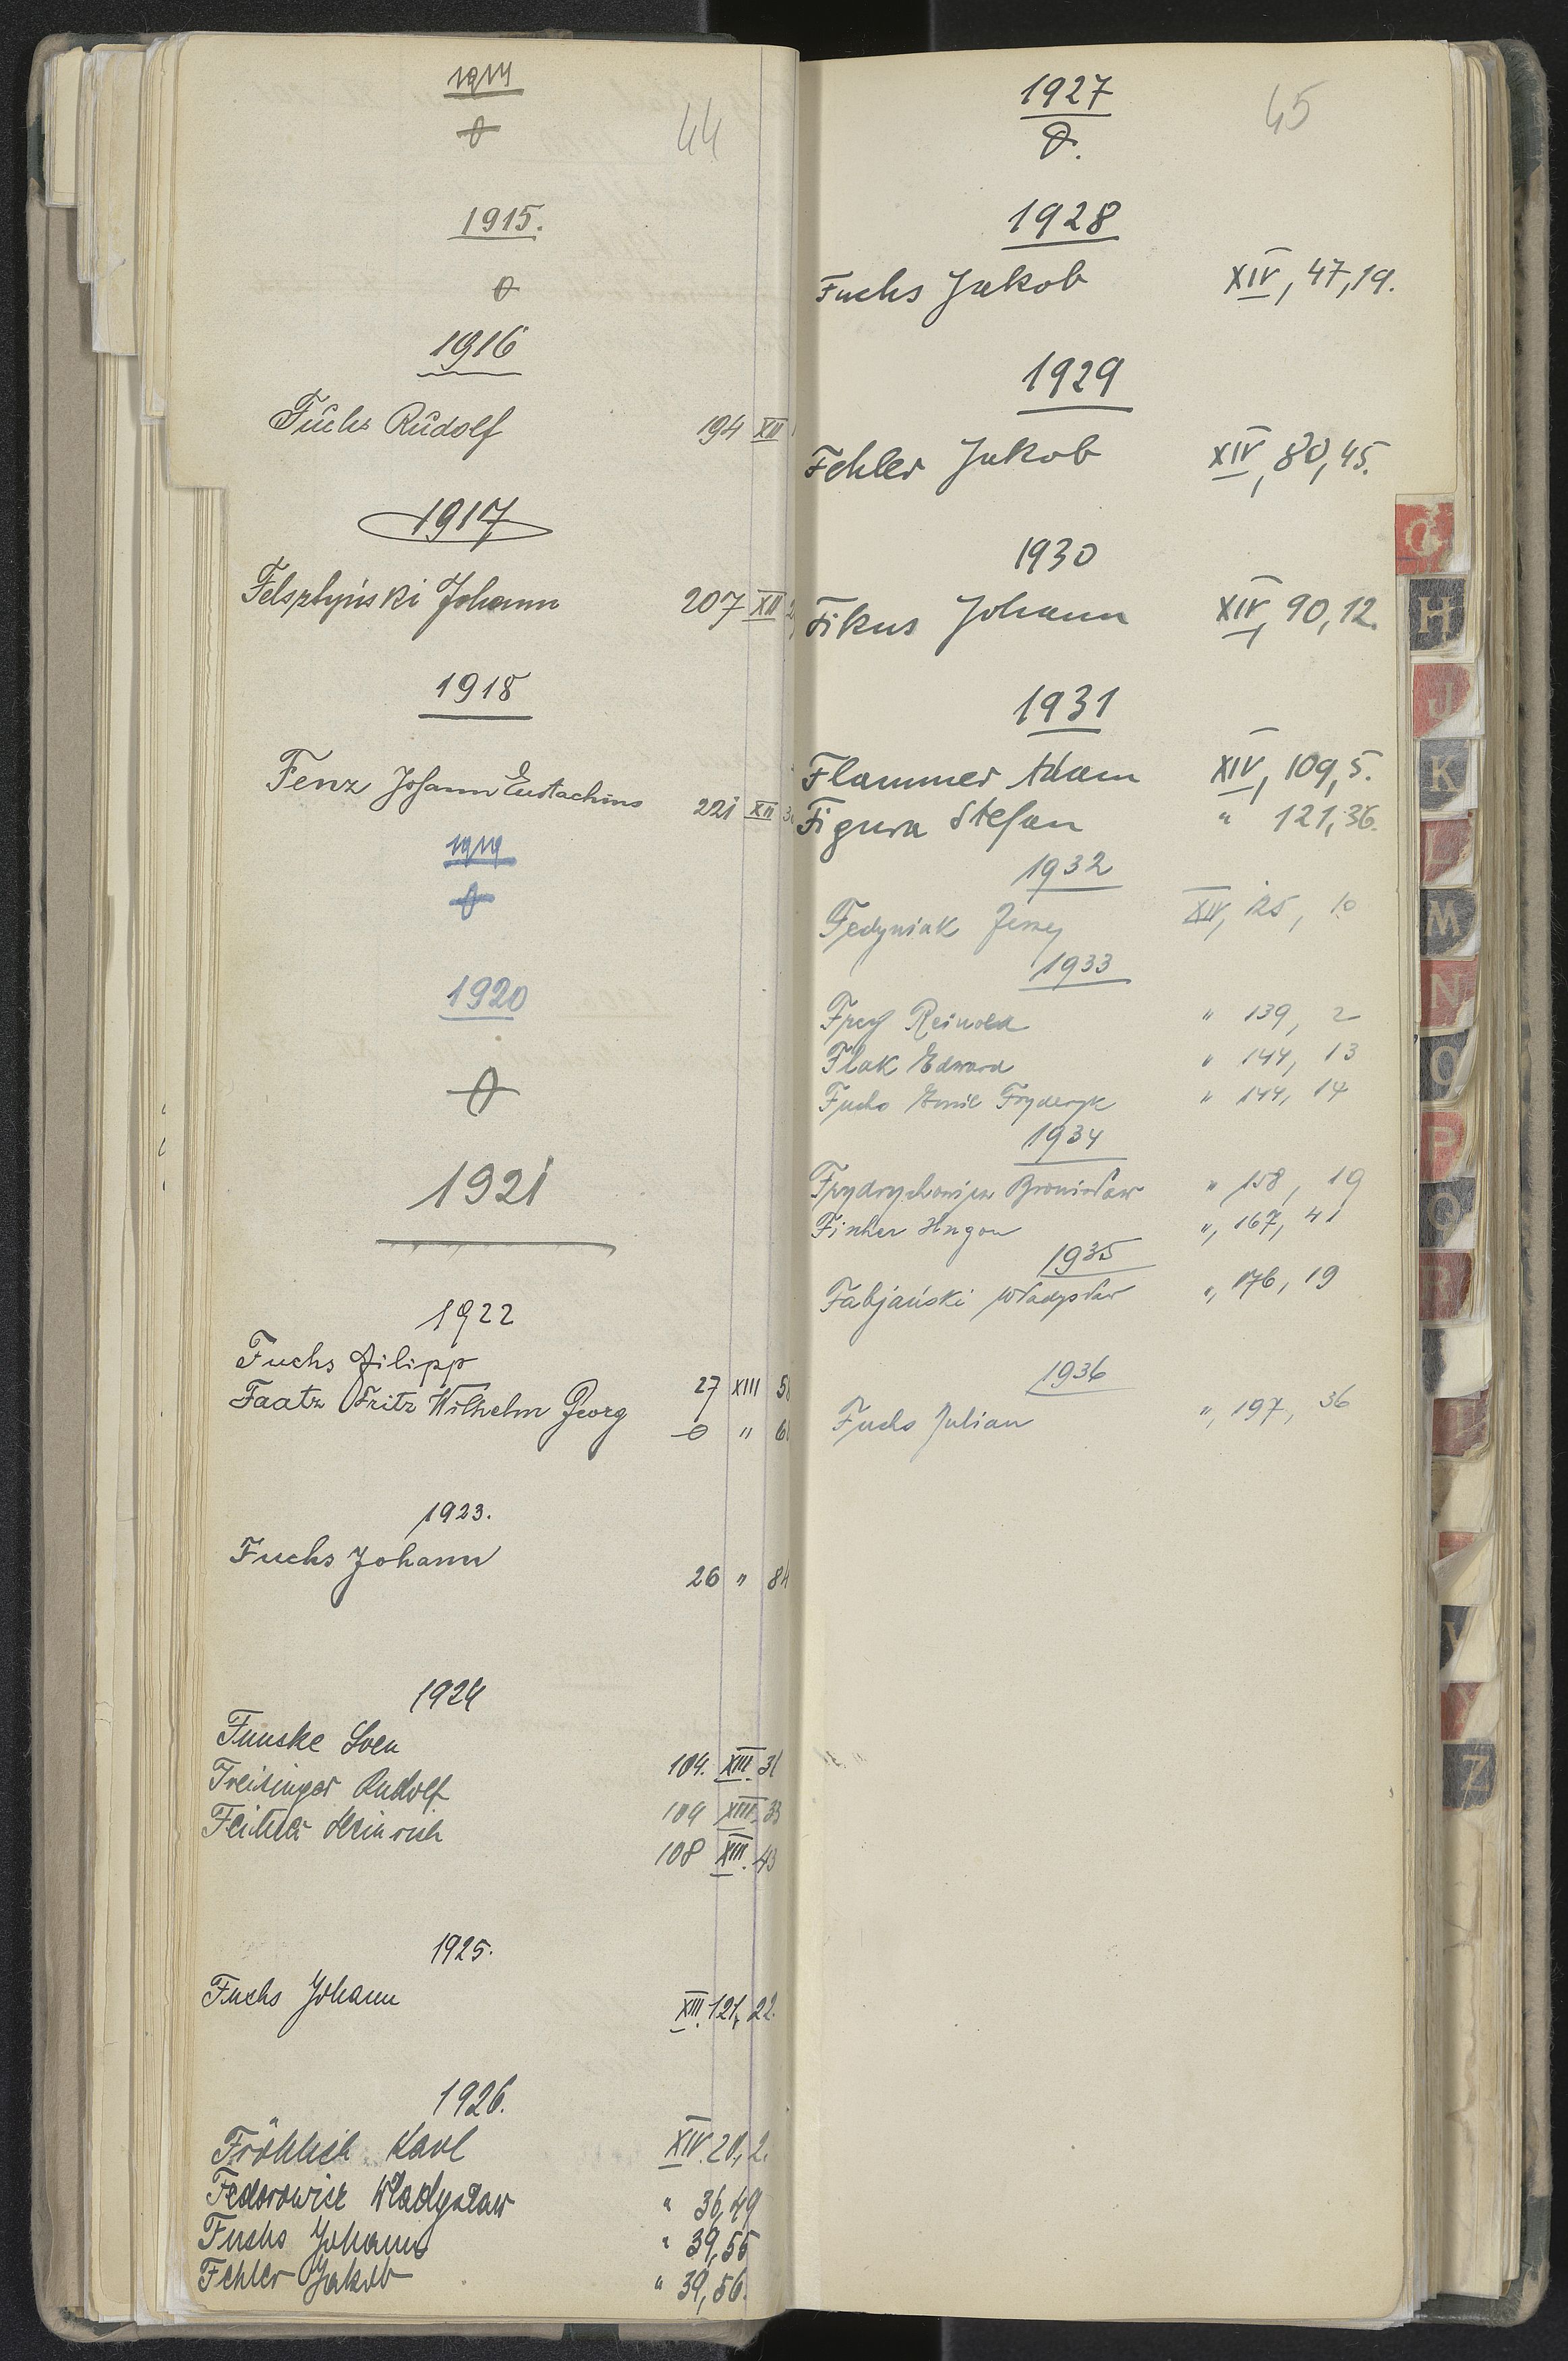 1914
0
44
1915.
0
1916
Fuchs Rudolf 194 XII
1917
Felsztyński Johann 207 XII 2
1918
Fenz Johann Eustachius 221 XII 3
1919
0
1920
0
1921
1922
Fuchs Filipp 27 XIII 5
Faatz Fritz Wilhelm Georg 0 " 6
1923.
Fuchs Johann 26 " 84
1924
Funske Sven 104. XIII. 31
Freisinger Rudolf 104 XIII. 33
Heinrich 108 XIII. 43
1925.
Fuchs Johann XIII. 121, 22.
1926.
Fröhlich Karl XIV. 20, 2.
Fedorowicz Władysław " 36, 49
Fuchs Johann " 39, 55
Fehler Jakob " 39, 56.
1927
0.
45
1928
Fuchs Jakob XIV, 47, 19.
1929
Fehler Jakob XIV, 80, 45.
1930
Fikus Johann XIV, 90, 12.
1931
Flammer Adam XIV, 109, 5.
Figura Stefan " 121, 36.
1932
Fedyniak Jerzy XIV, 125, 10
1933
Frey Reinold " 139, 2
Flak Edward " 144, 13
Fuchs Emil Fryderyk " 144, 14
1934
Frydrychowicz Bronisław " 158, 19
Hugon ", 167, 41
1935
Fabjański Władysław ", 176, 19
1936
Fuchs Julian ", 197, 36
G
H
J
K
L
M
N
O
P
Q
R
Z